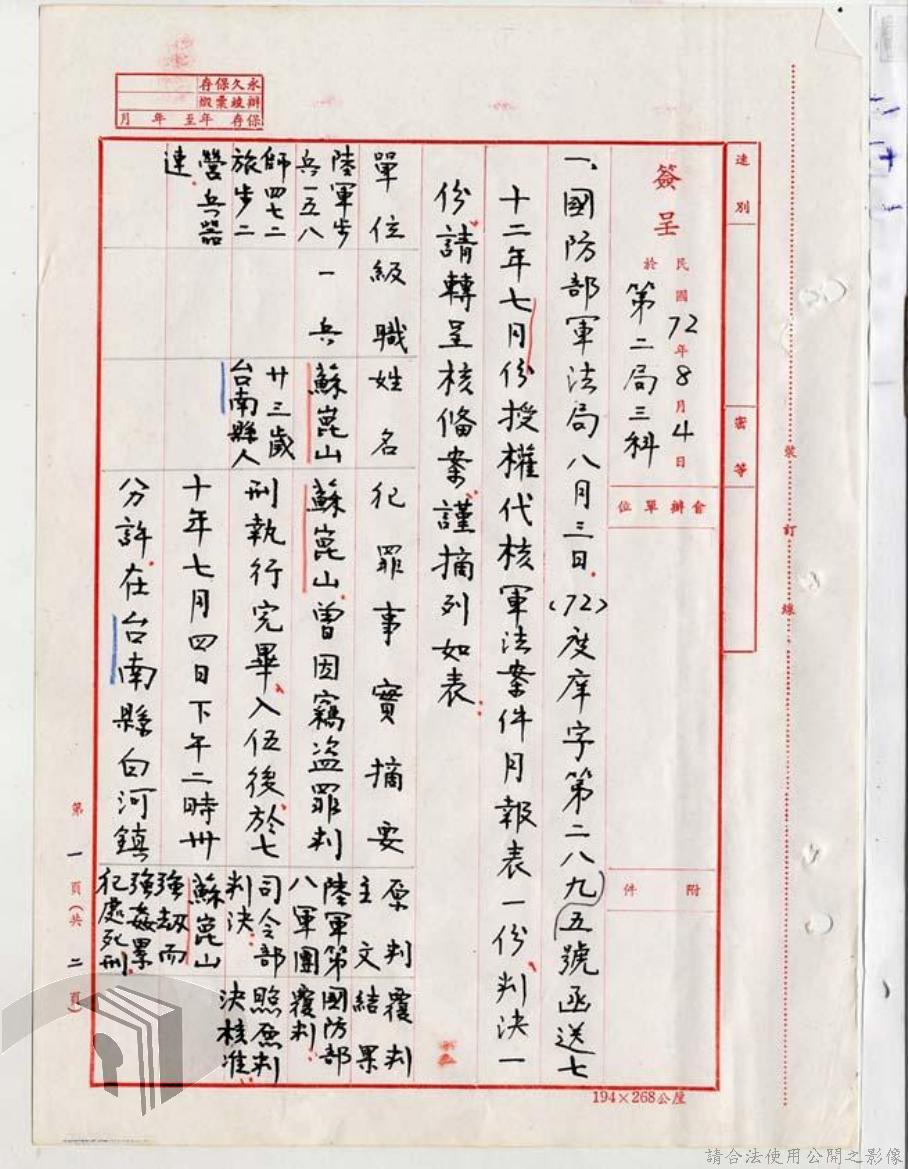 永久保存
辦竣彙繳
保存 年至 年 月
速別
密等
裝訂線
簽呈
民國72年8月4日
於第二局三科
會辦單位
附件
一、國防部軍法局八月三日(72)度庠字第二八九五號函送七
十二年七月份授權代核軍法案件月報表一份、判決一
份請轉呈核備案謹摘列如表：
單位
級職
姓名
犯罪事實摘要
原判主文
覆判結果
陸軍步
兵一五八
師四七二
旅步二
營兵器
連
一兵
蘇崑山
廿三歲
台南縣人
蘇崑山曾因竊盜罪判
刑執行完畢、入伍後於七
十年七月四日下午二時卅
分許在台南縣白河鎮
陸軍第
八軍團
司令部
判決：
蘇崑山
強劫而
強姦累
犯處死刑
國防部
覆判：
照原判
決核准：
第一頁(共二頁)
194×268公厘
請合法使用公開之影像